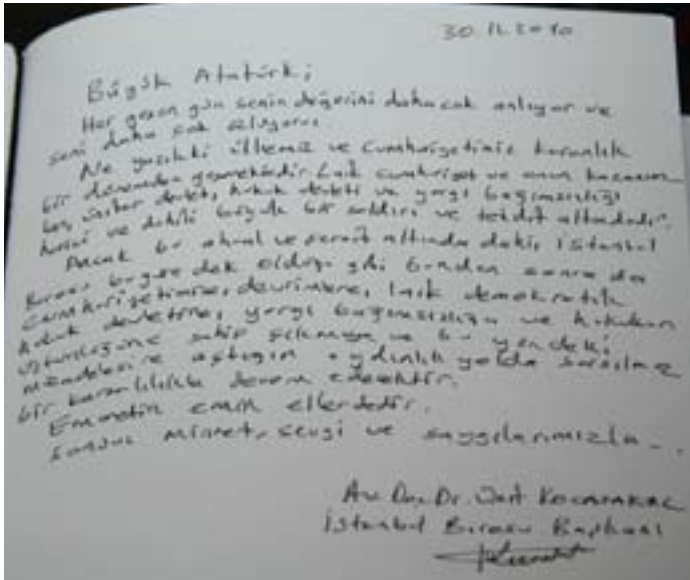 30.11.2010
Büyük Atatürk;
Her geçen gün senin değerini daha çok anlıyor ve
seni daha çok özlüyoruz.
Ne yazık ki ülkemiz ve Cumhuriyetimiz karanlık
bir dönemden geçmektedir. Laik cumhuriyet ve onun
devlet, hukuk devleti ve yargı bağımsızlığı
harici ve dahili büyük bir saldırı ve tehdit altındadır.
Ancak bu ahval ve şerait altında dahi, İstanbul
Barosu bugüne dek olduğu gibi bundan sonra da
Cumhuriyetimize, devrimlere, laik demokratik
hukuk devletine, yargı bağımsızlığı ve hukukun
üstünlüğüne sahip çıkmaya ve bu yöndeki
mücadelesine açtığın aydınlık yolda sarsılmaz
bir kararlılıkla devam edecektir.
Emanetin emin ellerdedir.
Sonsuz minnet, sevgi ve saygılarımızla...
Av. Doç. Dr. Ümit Kocasakal
İstanbul Barosu Başkanı